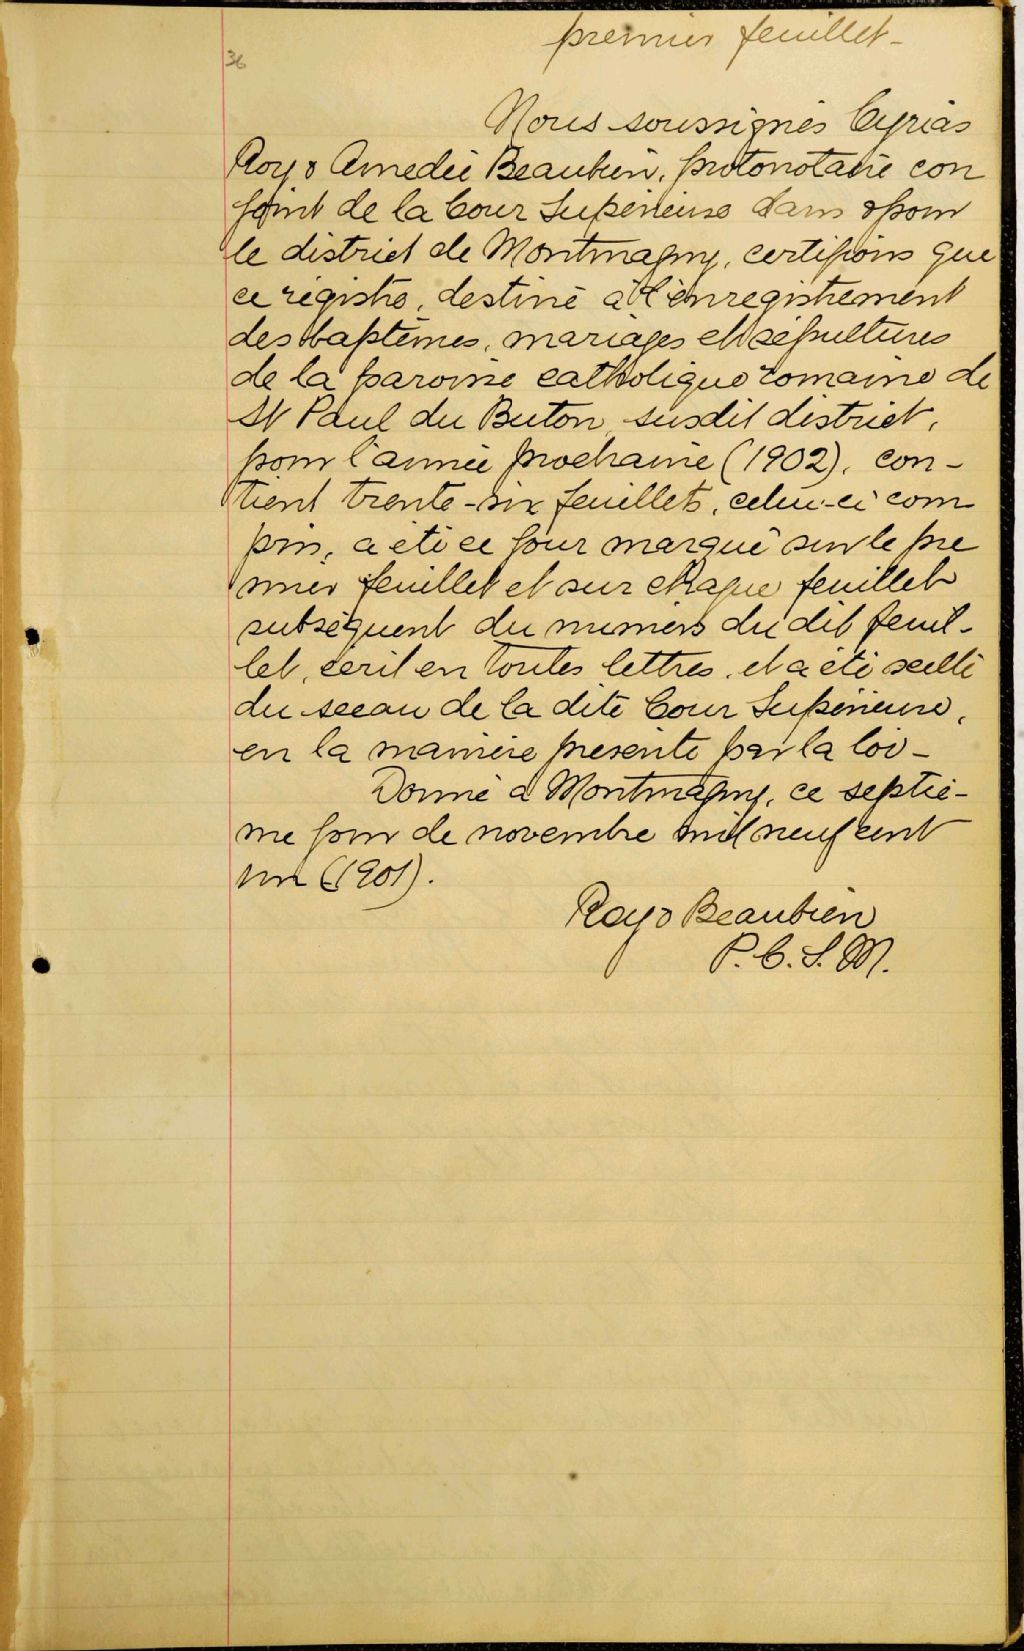 premier feuillet-
36
Nous soussignés Cyrias
Roy & Amedée Beaubien, protonotaire con
joint de la Cour Supérieure dans & pour
le district de Montmagny, certifions que
ce régistre, destiné à l'enregistrement
des baptêmes, mariages et sépultures
de la paroisse catholique romaine de
St Paul du Buton, susdit district,
pour l'année prochaine (1902), con-
tient trente-six feuillets, celui-ci com
pris, a été ce jour marqué sur le pre
mier feuillet et sur chaque feuillet
subséquent du numéro du dit feuil-
let, écrit en toutes lettres, et a été scellé
du sceau de la dite Cour Supérieure,
en la manière prescrite par la loi-
Donné à Montmagny, ce septiè-
me jour de novembre mil neuf cent
un (1901).
Roy & Beaubien
P. C. S. M.